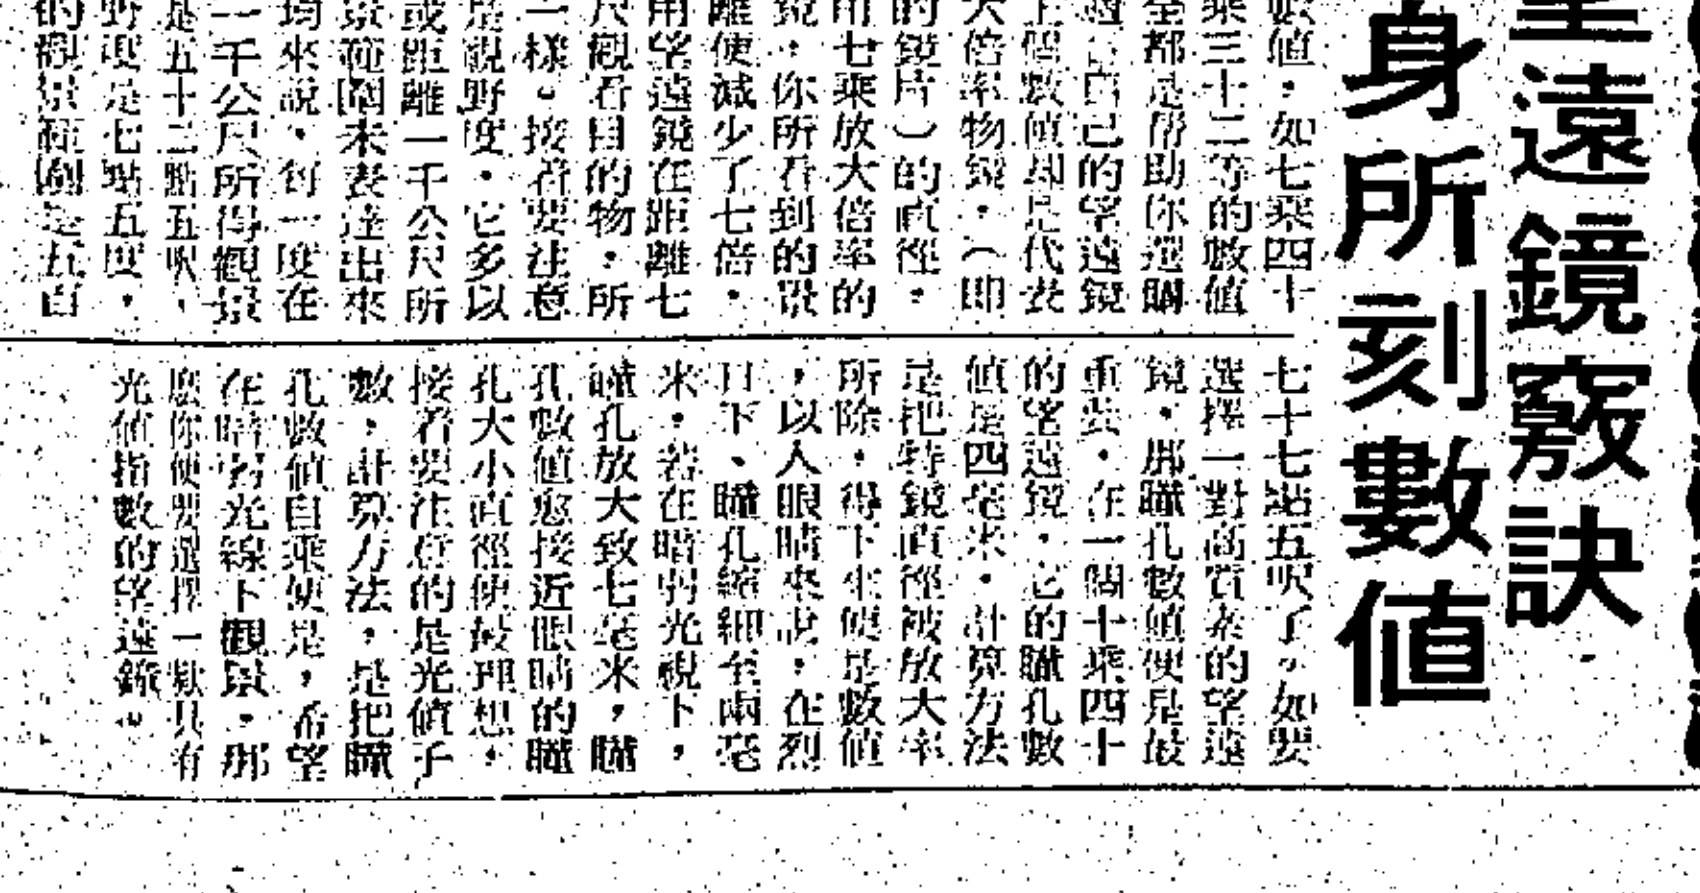 望遠鏡竅訣
身所刻數值
數值，如七乘四十
乘三十二等的數值
全都是帮助你選購
適合自己的望遠鏡
上個數值却是代表
大倍率物鏡，（即
的鏡片）的直徑，
用七乘放大倍率的
鏡，你所看到的景
離便減少了七倍，
用望遠鏡在距離七
尺觀看目的物，所
一樣。接着要注意
是視野度，它多以
或距離一千公尺所
景範圍來表達出來
均來說，每一度在
一千公尺所得觀景
是五十二點五呎，
野度是七點五度，
的觀景範圍是五百
七十七點五呎了。如要
選擇一對高質素的望遠
鏡，那瞳孔數值便是最
重要，在一個十乘四十
的望遠鏡，它的瞳孔數
值是四毫米，計算方法
是把特鏡直徑被放大率
所除，得下來便是數值
，以人眼睛來說，在烈
日下、瞳孔縮細至兩毫
米，若在暗弱光視下，
瞳孔放大致七毫米，瞳
孔數值愈接近眼睛的瞳
孔大小直徑便最理想，
接着要注意的是光值子
數，計算方法，是把瞳
孔數值自乘便是，希望
在暗弱光線下觀景，那
麼你便要選擇一款具有
光值指數的望遠鏡。